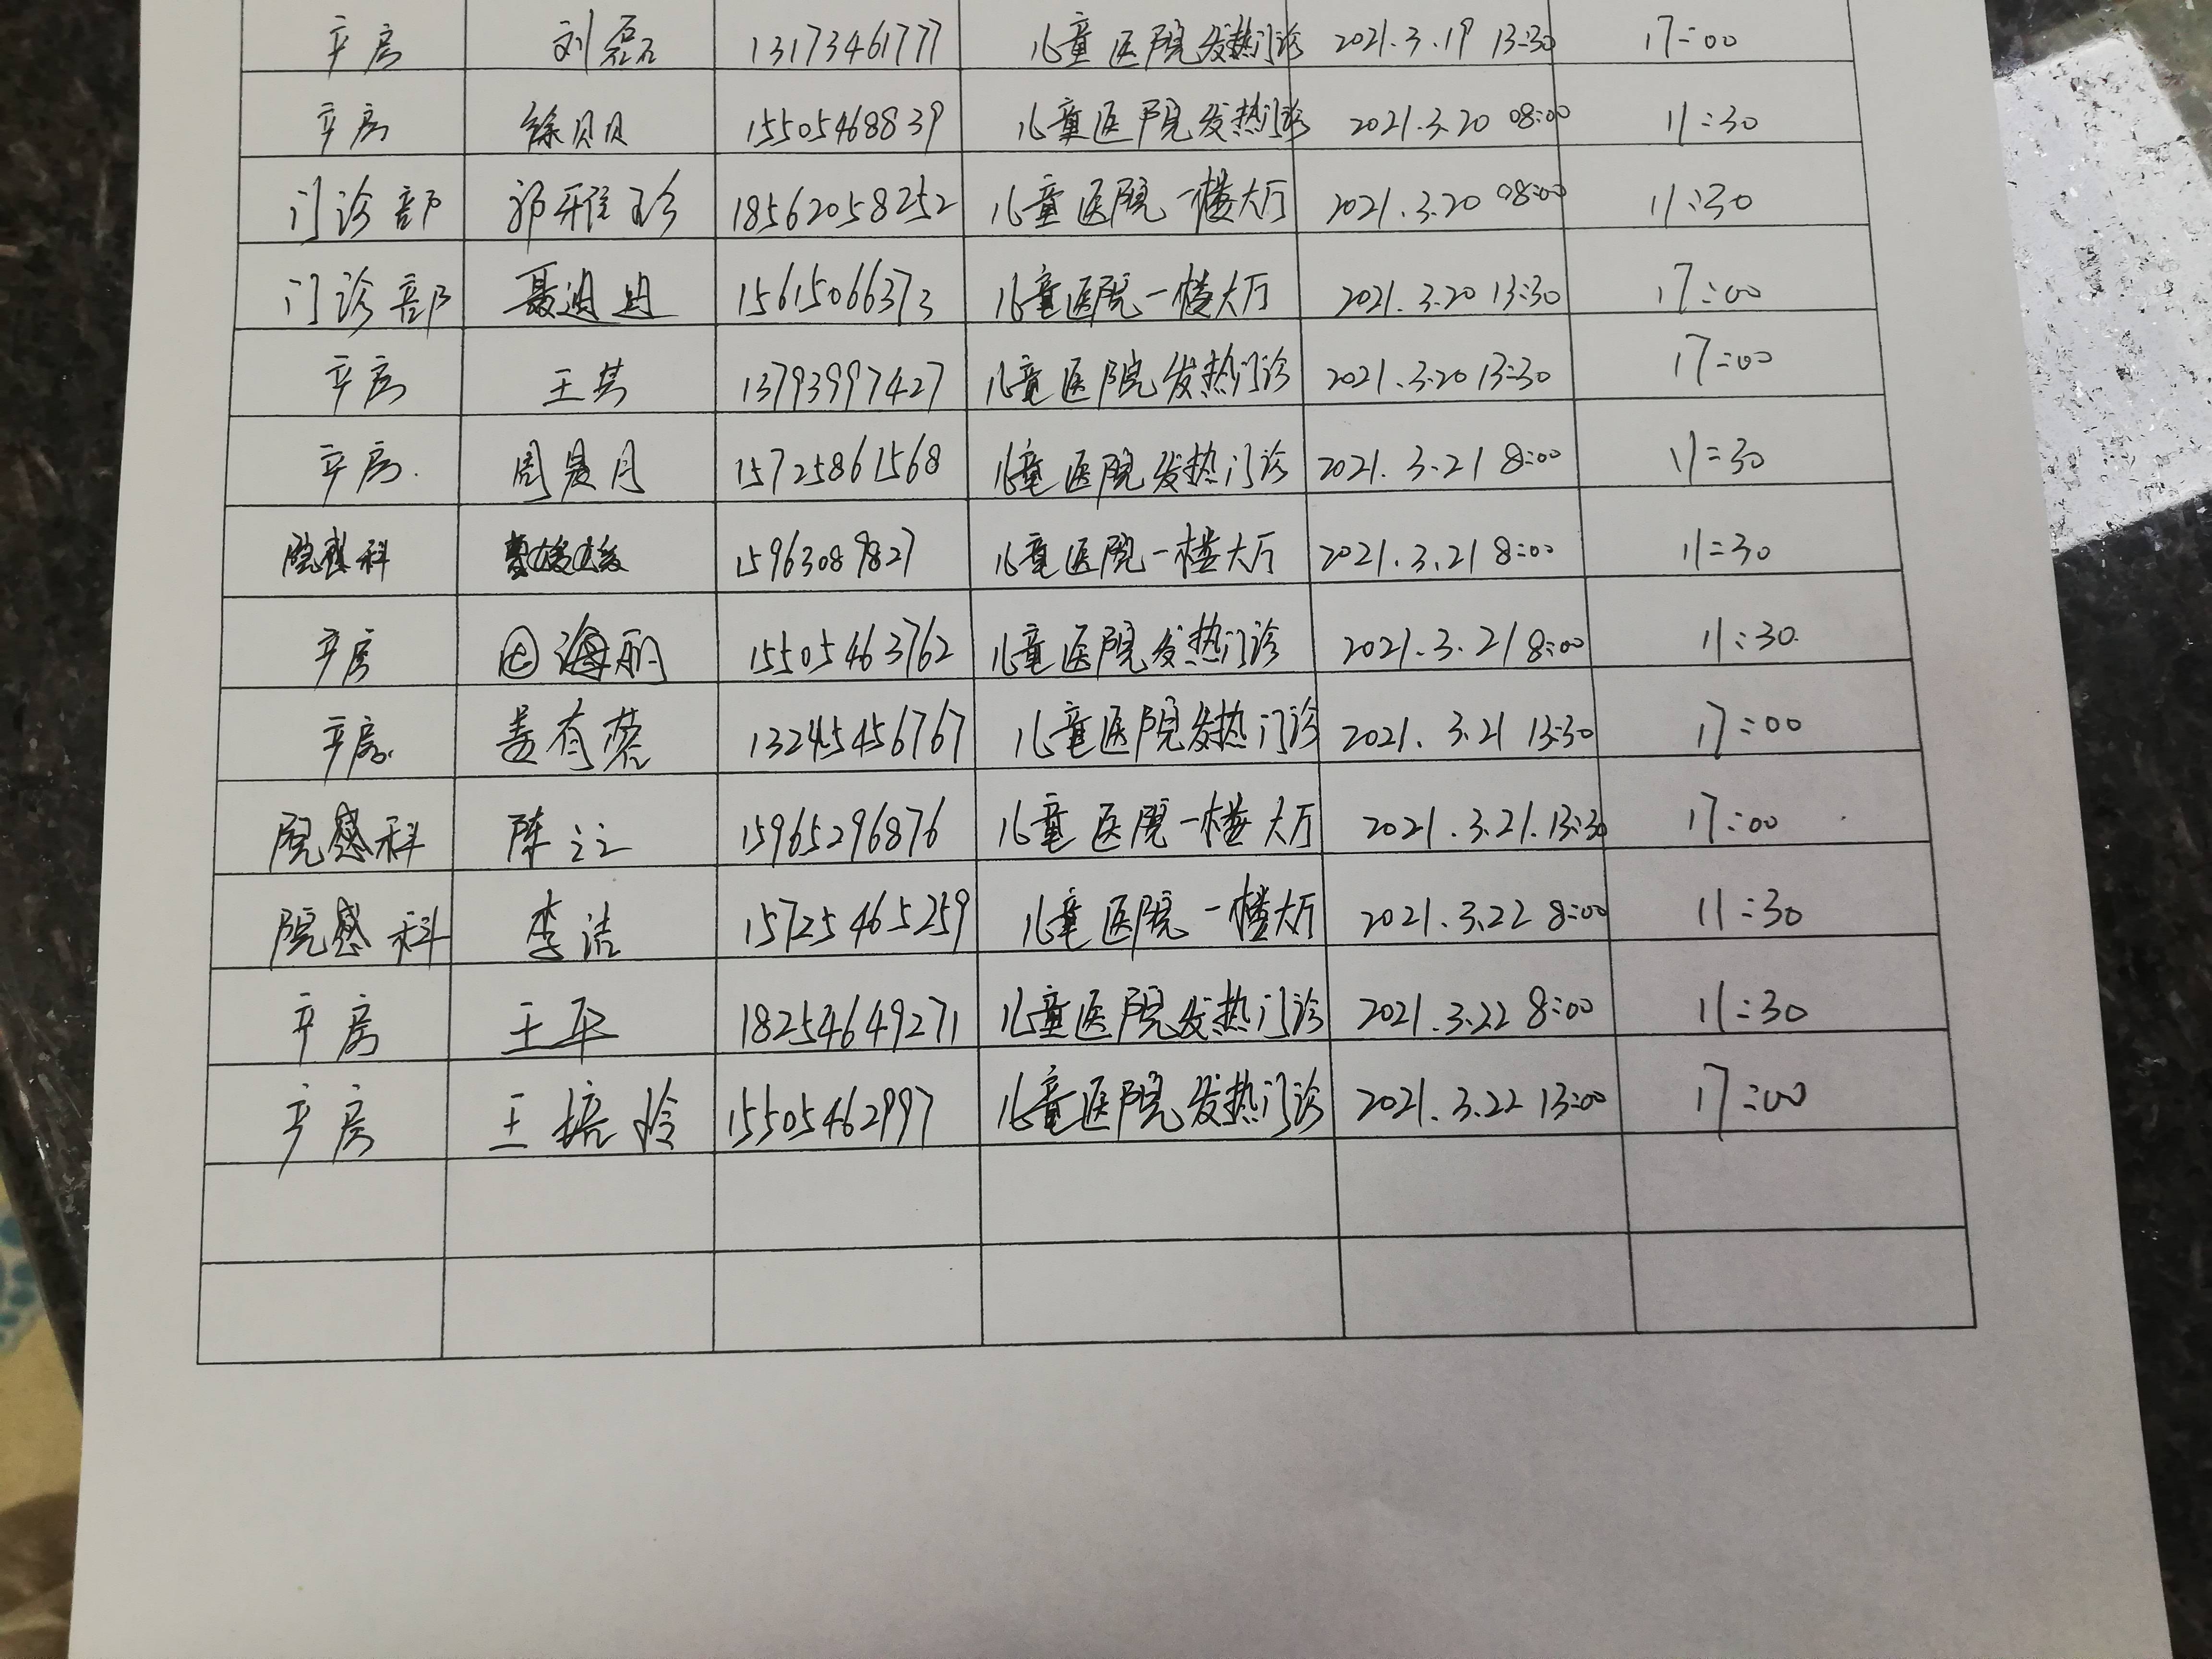 平房 刘磊 13173461777 儿童医院发热门诊 2021.3.19 13:30 17:00
平房 徐贝贝 15505468839 儿童医院发热门诊 2021.3.20 08:00 11:30
门诊部 郭雅珍 18562058252 儿童医院一楼大厅 2021.3.20 08:00 11:30
门诊部 聂迪迪 15615066373 儿童医院一楼大厅 2021.3.20 13:30 17:00
平房 王 13793997427 儿童医院发热门诊 2021.3.20 13:30 17:00
平房 周晨月 15725861568 儿童医院发热门诊 2021.3.21 8:00 11:30
院感科 15963089827 儿童医院一楼大厅 2021.3.21 8:00 11:30
平房 海丽 15505463762 儿童医院发热门诊 2021.3.21 8:00 11:30
平房 姜有蓉 13245456767 儿童医院发热门诊 2021.3.21 13:30 17:00
院感科 陈 15965296876 儿童医院一楼大厅 2021.3.21.13:30 17:00
院感科 李洁 15725465259 儿童医院一楼大厅 2021.3.22 8:00 11:30
平房 王平 18254649271 儿童医院发热门诊 2021.3.22 8:00 11:30
平房 王培玲 15505462997 儿童医院发热门诊 2021.3.22 13:00 17:00